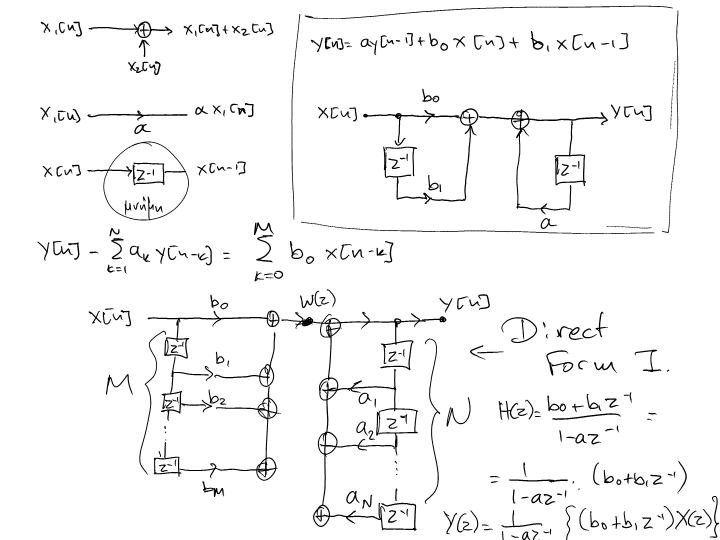 x₁[n] → ⊕ → x₁[n]+x₂[n]
x₂[n]
x₁[n] → α x₁[n]
a
x[n] → z⁻¹ x[n-1]
μνήμη
y[n] = ay[n-1]+b₀ x[n]+ b₁ x[n-1]
x[n] b₀ y[n]
z⁻¹ z⁻¹
b₁ a
y[n] - Σ_{k=1}^{N} aₖ y[n-k] = Σ_{k=0}^{M} b₀ x[n-k]
x[n] b₀ W(z) y[n]
z⁻¹ z⁻¹
M b₁ a₁ N
z⁻¹ b₂ a₂ z⁻¹
z⁻¹ b_M a_N z⁻¹
← Direct
Form I.
H(z) = (b₀+b₁z⁻¹)/(1-az⁻¹) =
= 1/(1-az⁻¹) · (b₀+b₁z⁻¹)
Y(z) = 1/(1-az⁻¹) {(b₀+b₁z⁻¹)X(z)}